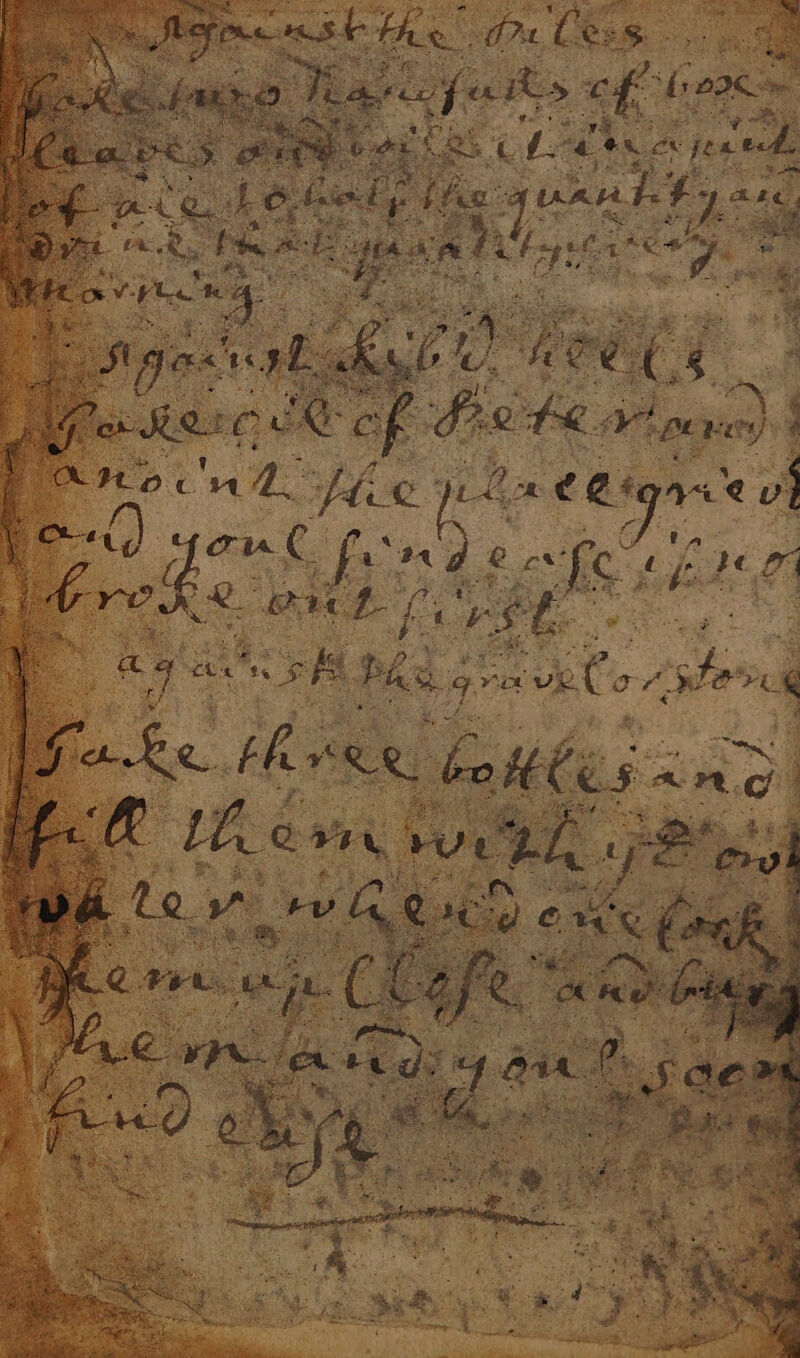 Against the Piles
Take two handfulls of box
leaves and boile it in a pint
of ale to half the quantity and
Drink that quantity every
morning
Against Kib'd heels
Take oile of Peter and
anoint the place griev'd
and you'l find ease if not
broke out first
against the gravel or stone
Take three bottles and
fill them with yr own
water when done cork
them up Close and bury
them and you'l soon
find ease